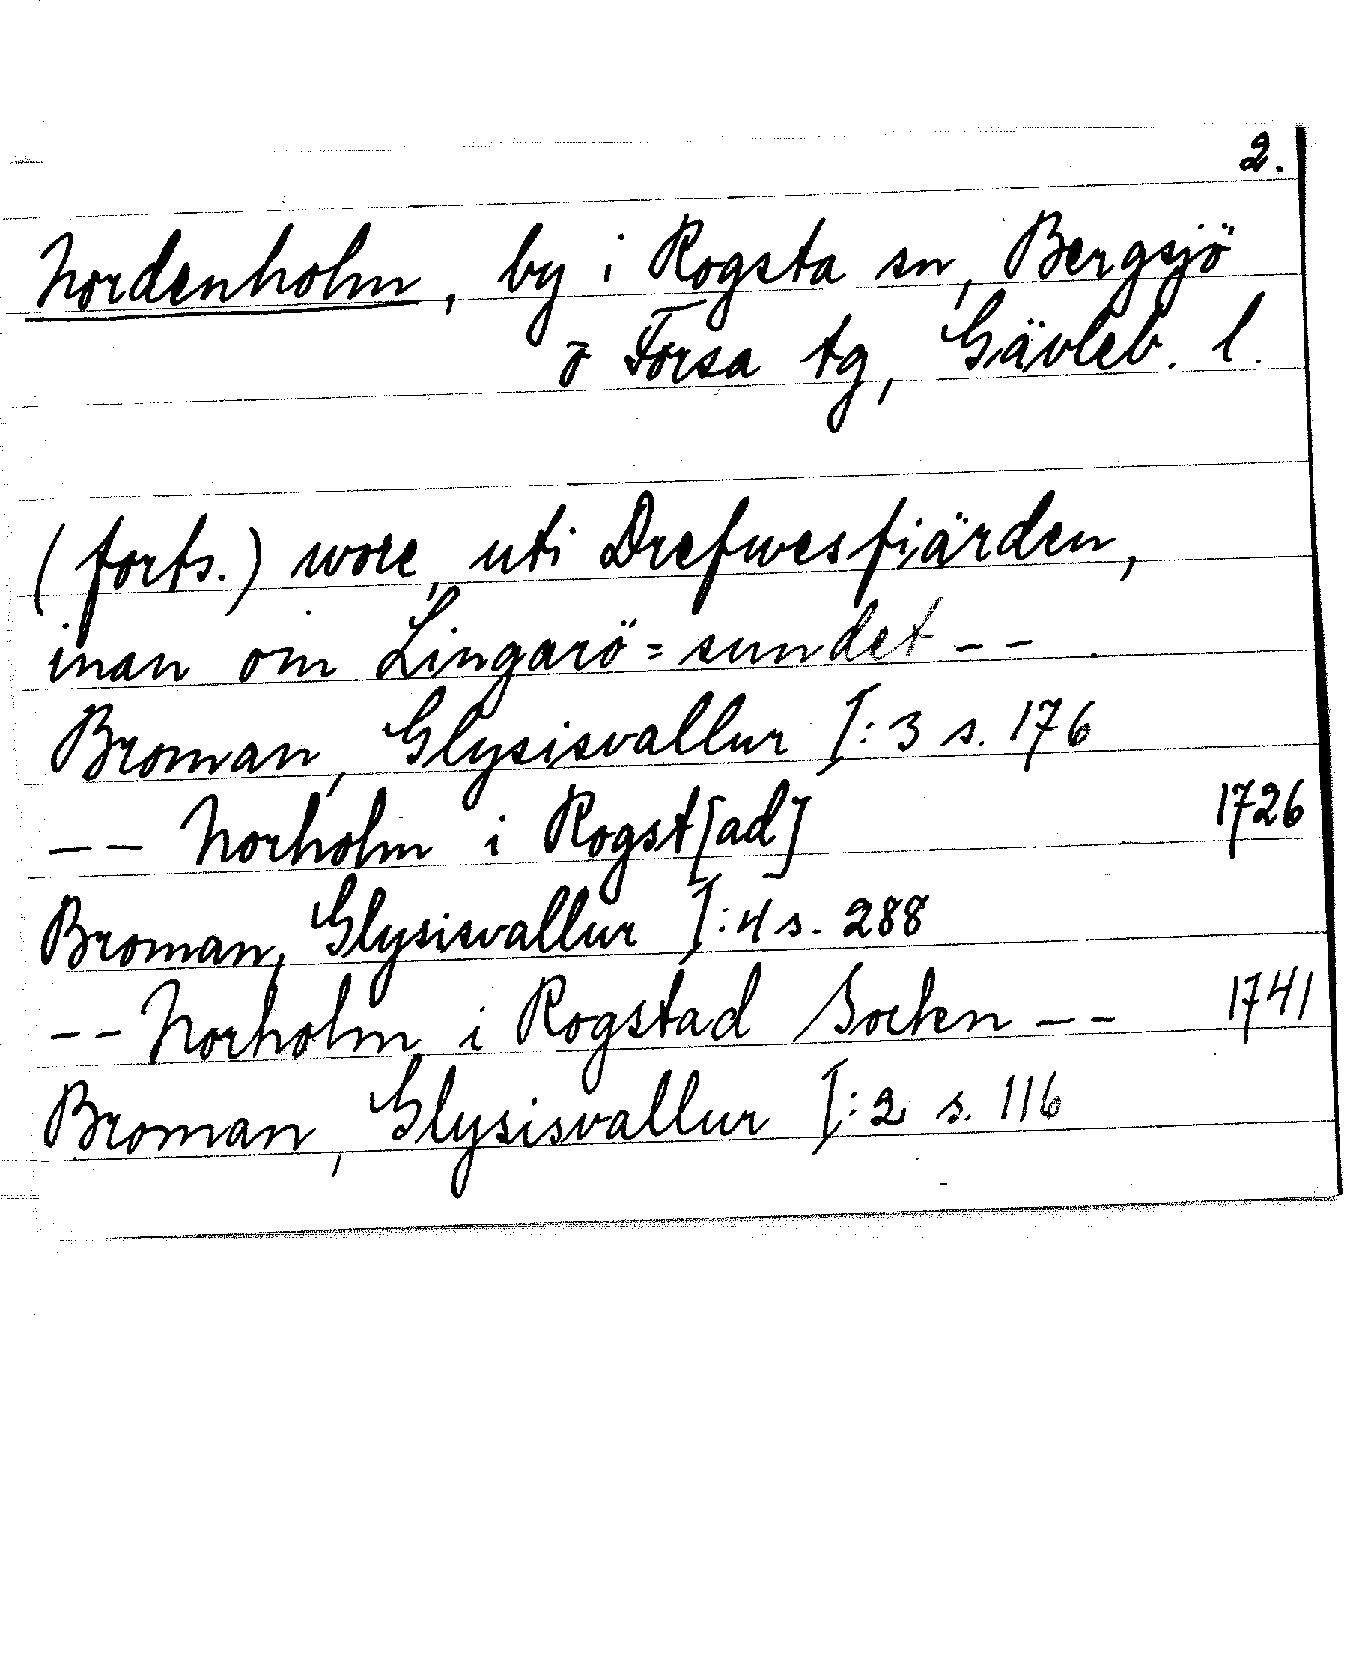 2.
Nordenholm, by i Rogsta sn, Bergsjö
o Forsa tg, Gävleb. l.
(forts.) wore, uti Drefwesfiärden,
inan om Lingarö=sundet --.
Broman, Glysisvallur I:3 s. 176
-- Norholm i Rogst[ad] 1726
Broman, Glysisvallur I:4 s. 288
-- Norholm i Rogstad Socken -- 1741
Broman, Glysisvallur I:2 s. 116